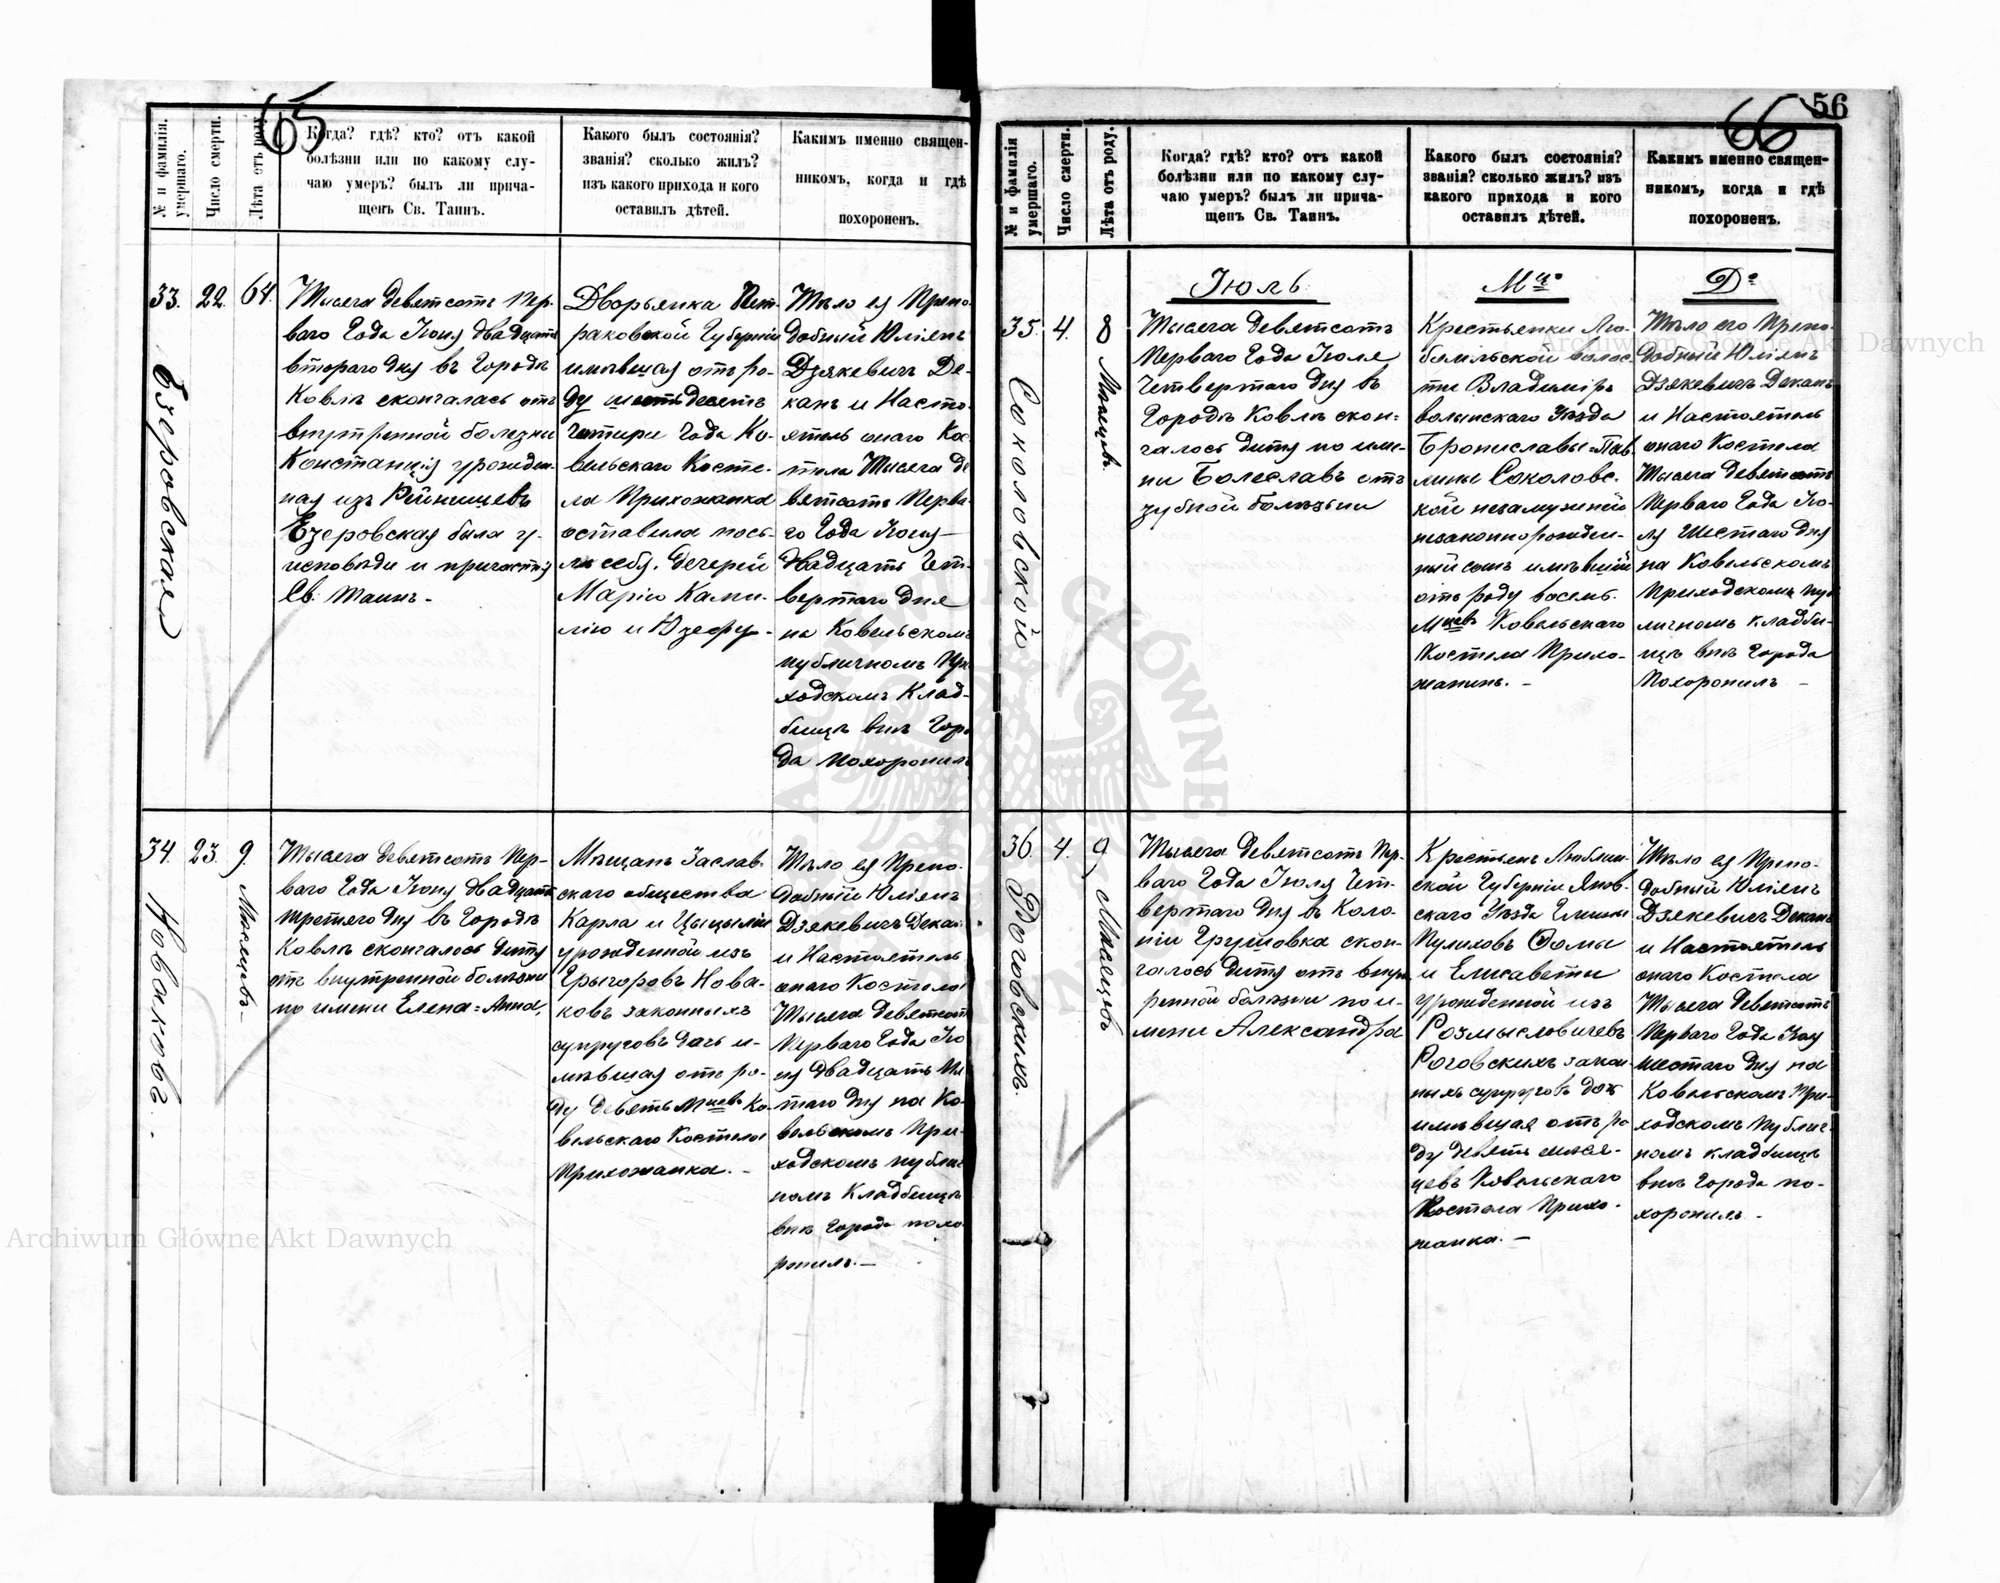 65
№ и фамилія умершаго.
Число смерти.
Лѣта отъ роду.
Когда? гдѣ? кто? отъ какой
болѣзни или по какому слу-
чаю умеръ? былъ ли прича-
щенъ Св. Таинъ.
Какого былъ состоянія?
званія? сколько жилъ?
изъ какого прихода и кого
оставилъ дѣтей.
Какимъ именно священ-
никомъ, когда и гдѣ
похороненъ.
33.
Езеровская
22.
64.
Тысяча девятсотъ пер-
ваго Года Іюня двадцать
втораго дня въ Городѣ
Ковлѣ скончалась отъ
внутренной болезни
Констанція урожден-
ная изъ Рейнишевъ
Езеровская была у
исповѣди и причастія
Св. Таинъ.-
Дворянка Пет-
раковской Губерніи
имѣвшая отъ ро-
ду шестьдесятъ
четыри Года Ко-
вельскаго Косте-
ла Прихожанка
оставила пось-
лѣ себя. дочерей
Марію Ками-
лію и Юзефу-
Тѣло ея Препо-
добный Юліянъ
Дзякевичъ Де-
канъ и Насто-
ятель онаго Кос-
тела Тысяча де
вятсотъ Перва-
го Года Іюня
двадцать Чет-
вертаго дня
на Ковельскомъ
публичномъ При
ходскомъ Клад-
бищѣ внѣ Горо
да похоронилъ
34.
Новакова.
23.
9. Мѣсяцевъ.
Тысяча девятсотъ Пер-
ваго Года Іюня двадцать
третяго дня въ Городѣ
Ковлѣ скончалось дитя
отъ внутренной болѣзни
по имени Елена=Анна,
Мѣщанъ Заслав-
скаго общества
Карла и Цыцыліи
урожденной изъ
Грыгоровъ Нова-
ковъ законныхъ
супруговъ дочь и-
мѣвшая отъ ро-
ду девять Мцевъ Ко-
вельскаго Костела
Прихожанка.-
Тѣло ея Препо-
добный Юліянъ
Дзякевичъ Декан
и Настоятель
онаго Костела
Тысяча девятсот
Перваго Года Ію
ня двадцать Пя
таго дня на Ко-
вельскомъ При-
ходскомъ публич
номъ Кладбищѣ
внѣ Города похо
ронилъ.-
66
56
№ и фамилія умершаго.
Число смерти.
Лѣта отъ роду.
Когда? гдѣ? кто? отъ какой
болѣзни или по какому слу-
чаю умеръ? былъ ли прича-
щенъ Св. Таинъ.
Какого былъ состоянія?
званія? сколько жилъ? изъ
какого прихода и кого
оставилъ дѣтей.
Какимъ именно священ-
никомъ, когда и гдѣ
похороненъ.
Іюль
Мца
35.
Соколовской
4.
8 Мѣсяцевъ.
Тысяча девятсотъ
Перваго Года Іюля
Четвертаго дня въ
Городѣ Ковлѣ скон=
чалось дитя по име-
ни Болеславъ отъ
зубной болѣзни
Крестьянки Лю-
бомльской волос-
ти Владиміръ
волынскаго Уѣзда
Брониславы=Пав
лины Соколовс-
кой незамужней
незаконнорожден-
ный сынъ имѣвшій
отъ роду восемь
Мцевъ Ковельскаго
Костела Прихо-
жанинъ.-
Тѣло его Препо-
добный Юліянъ
Дзякевичъ Деканъ
и Настоятель
онаго Костела
Тысяча девятсотъ
Перваго Года Ію-
ля Шестаго дня
на Ковельскомъ
Приходскомъ пуб
личномъ кладби-
щѣ внѣ Города
Похоронилъ-
36.
Роговскихъ.
4.
9. Мѣсяцевъ
Тысяча девятсотъ Пер-
ваго Года Іюля Чет-
вертаго дня въ Коло-
ніи Грушовка скон-
чалось дитя отъ внут
ренной болѣзни по и-
мени Александра
Крестьянъ Люблин-
ской Губерніи Янов-
скаго Уѣзда Гмины
Ѳомы
и Елисаветы
урожденной изъ
Розмысловичевъ
Роговскихъ закон
ныхъ супруговъ доч
имѣвшая отъ ро
ду девять мѣся-
цевъ Ковельскаго
Костела Прихо-
жанка.-
Тѣло ея Препо-
добный Юліянъ
Дзякевичъ Деканъ
и Настоятель
онаго Костела
Тысяча девятсотъ
Перваго Года Іюля
шестаго дня на
Ковельскомъ При-
ходскомъ Публич-
номъ кладбищѣ
внѣ Города по-
хоронилъ-
Archiwum Główne Akt Dawnych
Archiwum Główne Akt Dawnych